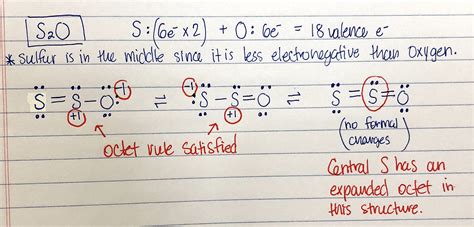 S₂O S: (6e⁻ x 2) + O: 6e⁻ = 18 valence e⁻
* Sulfur is in the middle since it is less electronegative than oxygen.
S=S-O ⇌ S-S=O ⇌ S=S=O
-1 -1
+1 +1
(no formal
changes)
octet rule satisfied
Central S has an
expanded octet in
this structure.